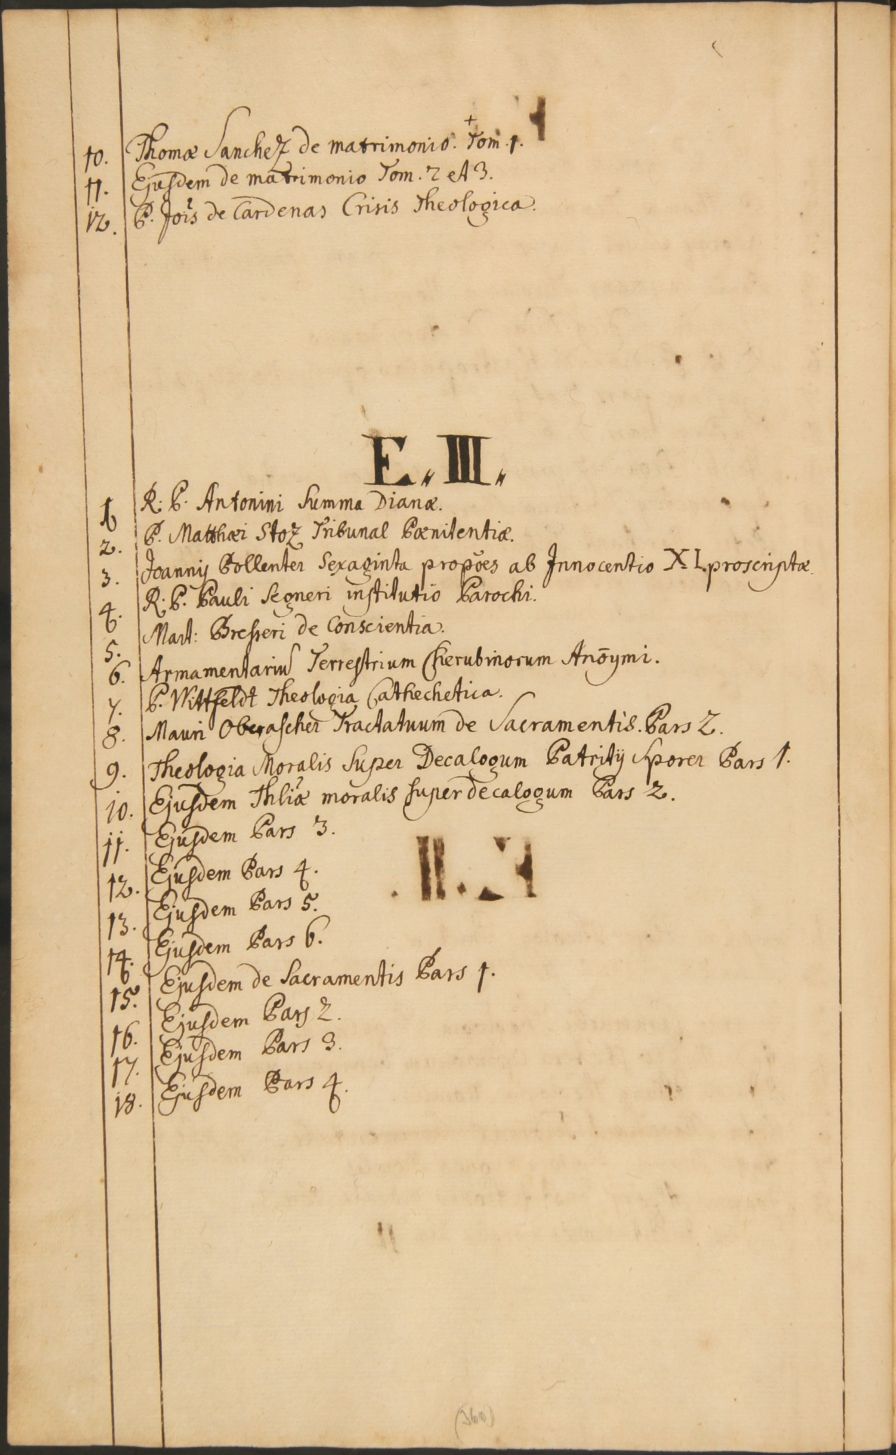 10. Thomæ Sanchez de matrimonio. Tom. 1.
11. Ejusdem de matrimonio Tom. 2 et 3.
12. P. Jois de Cardenas Crisis Theologica.
E. III.
1 R. P. Antonini Summa Dianæ.
2. P. Matthæi Stoz Tribunal Pœnitentiæ.
3. Joannis Pollenter Sexaginta propões ab Innocentio XI. proscriptæ.
4. R. P. Pauli Segneri institutio Parochi.
5. Mart: Breseri de Conscientia.
6. Armamentariū Terrestrium Cherubinorum Anōymi.
7. P. Wittfeldt Theologia Cathechetica.
8. Mauri Oberascher Tractatuum de Sacramentis. Pars 2.
9. Theologia Moralis Super Decalogum Patritij Sporer Pars 1.
10. Ejusdem Thliæ moralis super decalogum Pars 2.
11. Ejusdem Pars 3.
12. Ejusdem Pars 4.
13. Ejusdem Pars 5.
14. Ejusdem Pars 6.
15. Ejusdem de Sacramentis Pars 1.
16. Ejusdem Pars 2.
17. Ejusdem Pars 3.
18. Ejusdem Pars 4.